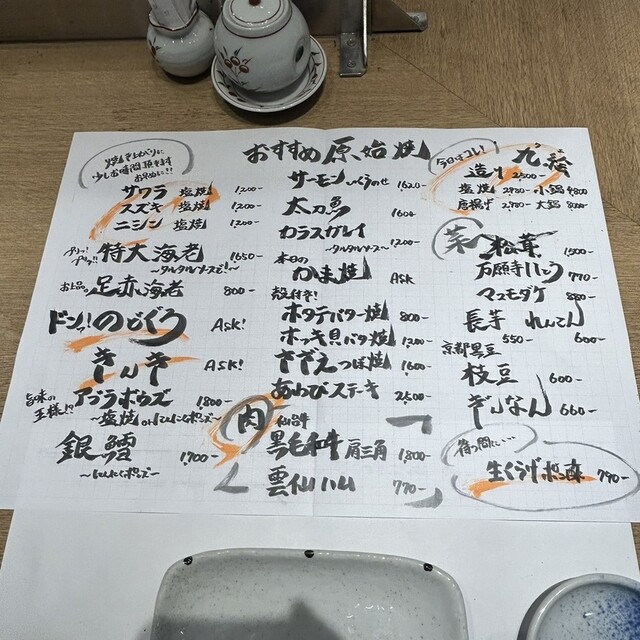 おすすめ 原始焼
焼き上がりに
少しお時間頂きます
お早めに!!
サワラ 塩焼 1,200-
スズキ 塩焼 1,200-
ニシン 塩焼 1,200-
プリッ!プリッ!! 特大海老 1650-
〜タルタルソース〜!
お上品 足赤海老 800-
ドーン!! のどぐろ Ask!
きんき Ask!
旨味の王様!? アブラボウズ 1,800-
〜塩焼 or にんにくポンズ〜
銀鱈 1,700-
〜にんにくポンズ〜
サーモン いくらのせ 1620-
太刀魚 1600-
カラスガレイ 1200-
〜タルタルソース〜
本日の
かま焼 Ask
殻付き!
ホタテバター焼 800-
ホッキ貝バター焼 1,200-
さざえつぼ焼 1,600-
あわびステキ 2,500-
肉
仙台
黒毛和牛 肩三角 1,800-
雲仙ハム 770-
今日はコレ!
九絵
造り 2,500-
塩焼 2,980- 小鍋 4,800
唐揚げ 2,980- 大鍋 8,000-
菜
松茸 1,500-
万願寺いろり 770-
マスモダケ 880-
長芋 れんこん
550- 600-
京都黒豆
枝豆 600-
ぎんなん 660-
待つ間に…
生くらげポン酢 790-